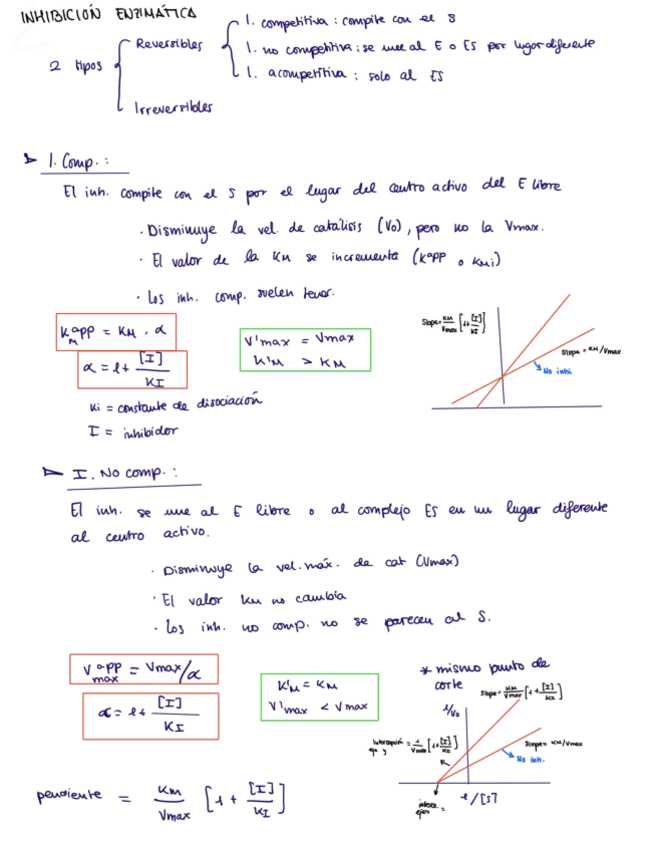 INHIBICIÓN ENZIMÁTICA
2 tipos
Reversibles
I. competitiva : compite con el S
I. no competitiva : se une al E o ES por lugar diferente
I. acompetitiva : solo al ES
Irreversibles
I. Comp. :
El inh. compite con el S por el lugar del centro activo del E libre
· Disminuye la vel. de catálisis (V₀), pero no la Vmax.
· El valor de la KM se incrementa (Kapp o KMi)
· Los inh. comp. suelen tener.
K_M^app = KM . α
α = 1 + [I]/KI
V'max = Vmax
K'M > KM
Ki = constante de disociación
I = inhibidor
Slope = KM/Vmax [1+[I]/KI]
Slope = KM/Vmax
No inhi.
I. No comp. :
El inh. se une al E libre o al complejo ES en un lugar diferente
al centro activo.
· Disminuye la vel. máx. de cat (Vmax)
· El valor KM no cambia
· Los inh. no comp. no se parecen al S.
V_max^app = Vmax/α
α = 1 + [I]/KI
K'M = KM
V'max < Vmax
* mismo punto de
corte
Slope = KM/Vmax [1+[I]/KI]
1/V₀
Intercepción eje y = 1/Vmax [1+[I]/KI]
Slope = KM/Vmax
No inh.
ejex =
1/[S]
pendiente = KM/Vmax [1 + [I]/KI]